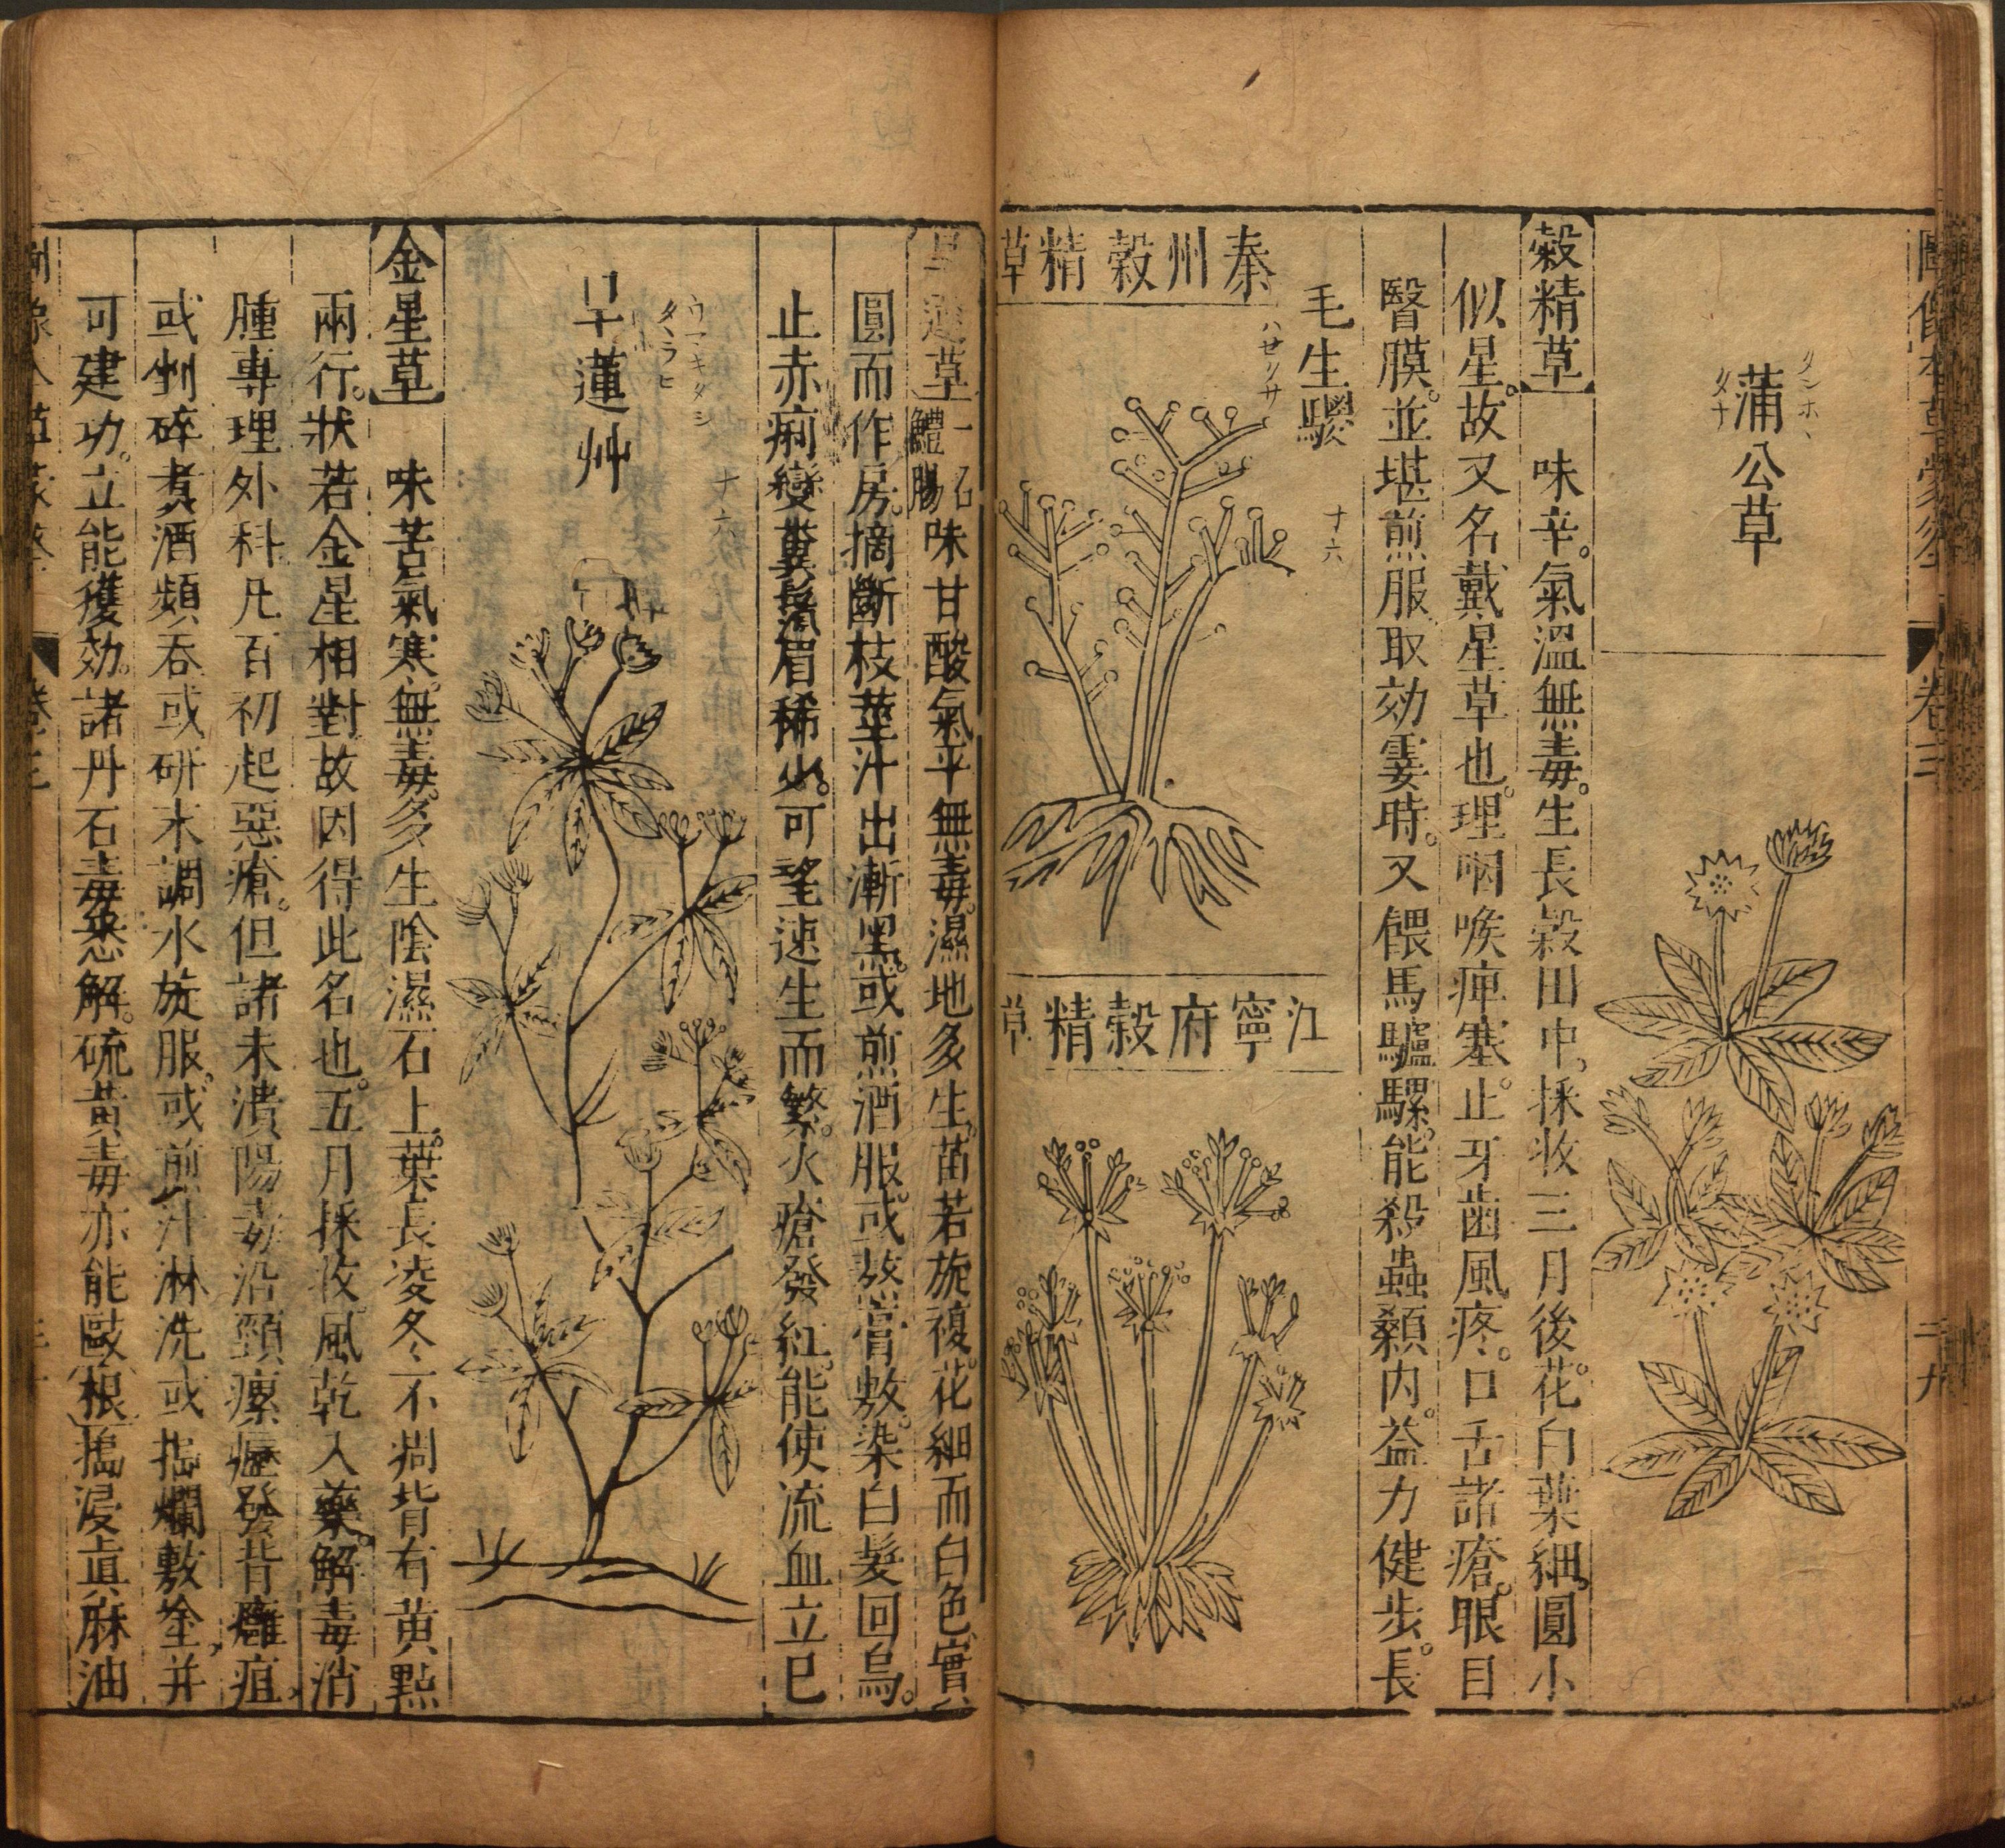 卷三
二九
蒲公草
タンホヽ
タナ
穀精草　味辛。氣溫無毒。生長穀田中。採收三月後。花白葉細。圓小
似星。故又名戴星草也。理咽喉痺塞。止牙齒風疼。口舌諸瘡。眼目
醫膜。並堪煎服取効霎時。又餵馬驢騾。能殺蟲顙內。益力健步。長
毛生驟
十六
秦州穀精草
江寧府穀精草
蓮草一名鱧腸味甘酸氣平無毒。濕地多生。苗若旋複。花細而白色。實
圓而作房。摘斷枝莖汁出漸黑。或煎酒服。或熬膏敷。染白髮回烏。
止赤痢變糞。鬚眉稀少。可望速生而繁。火瘡發紅。能使流血立已
旱蓮艸
十六
金星草　味苦氣寒。無毒。多生陰濕石上。葉長凌冬不凋背有黃點
兩行。狀若金星相對故因得此名也。五月採收風乾入藥。解毒消
腫專理外科凡百初起惡瘡。但諸未潰陽毒沿頸瘰癧發背癰疽
或剉碎煑酒頻吞或研末調水旋服。或煎汁淋洗或搗爛敷塗。并
可建功。立能獲効。諸丹石毒悉解。硫黃毒亦能敺根搗浸真麻油